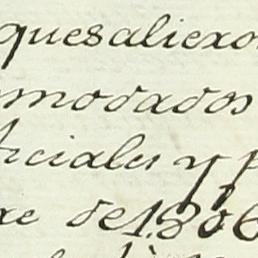 que salieron
modados
ticiales y p
re de 1806